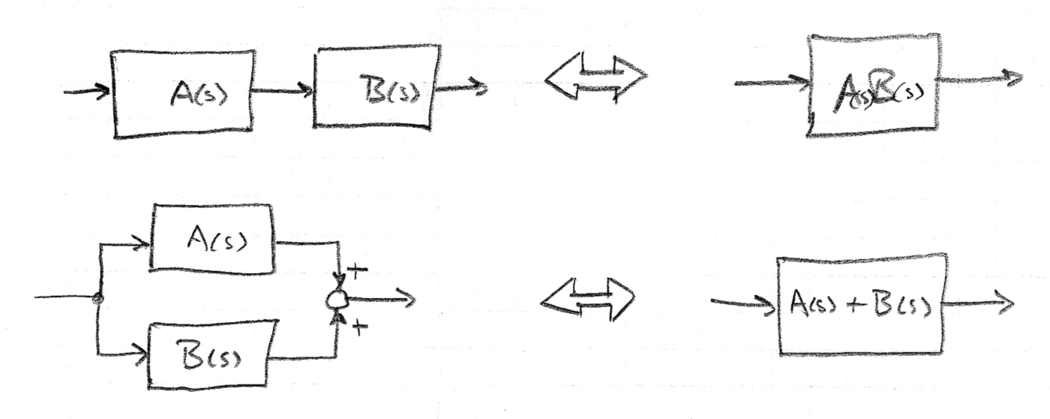 A(s) B(s) A(s)B(s)
A(s)
+
A(s) + B(s)
+
B(s)